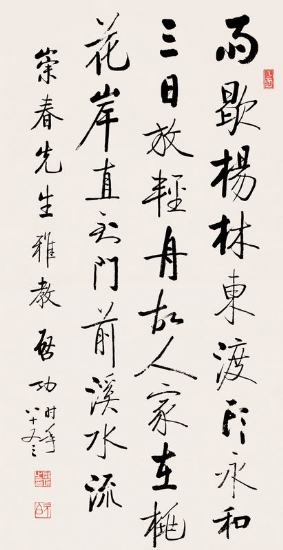 雨歇楊林東渡頭永和
三日放輕舟故人家在桃
花岸直到門前溪水流
崇春先生雅教 啓功 時年
八十又三